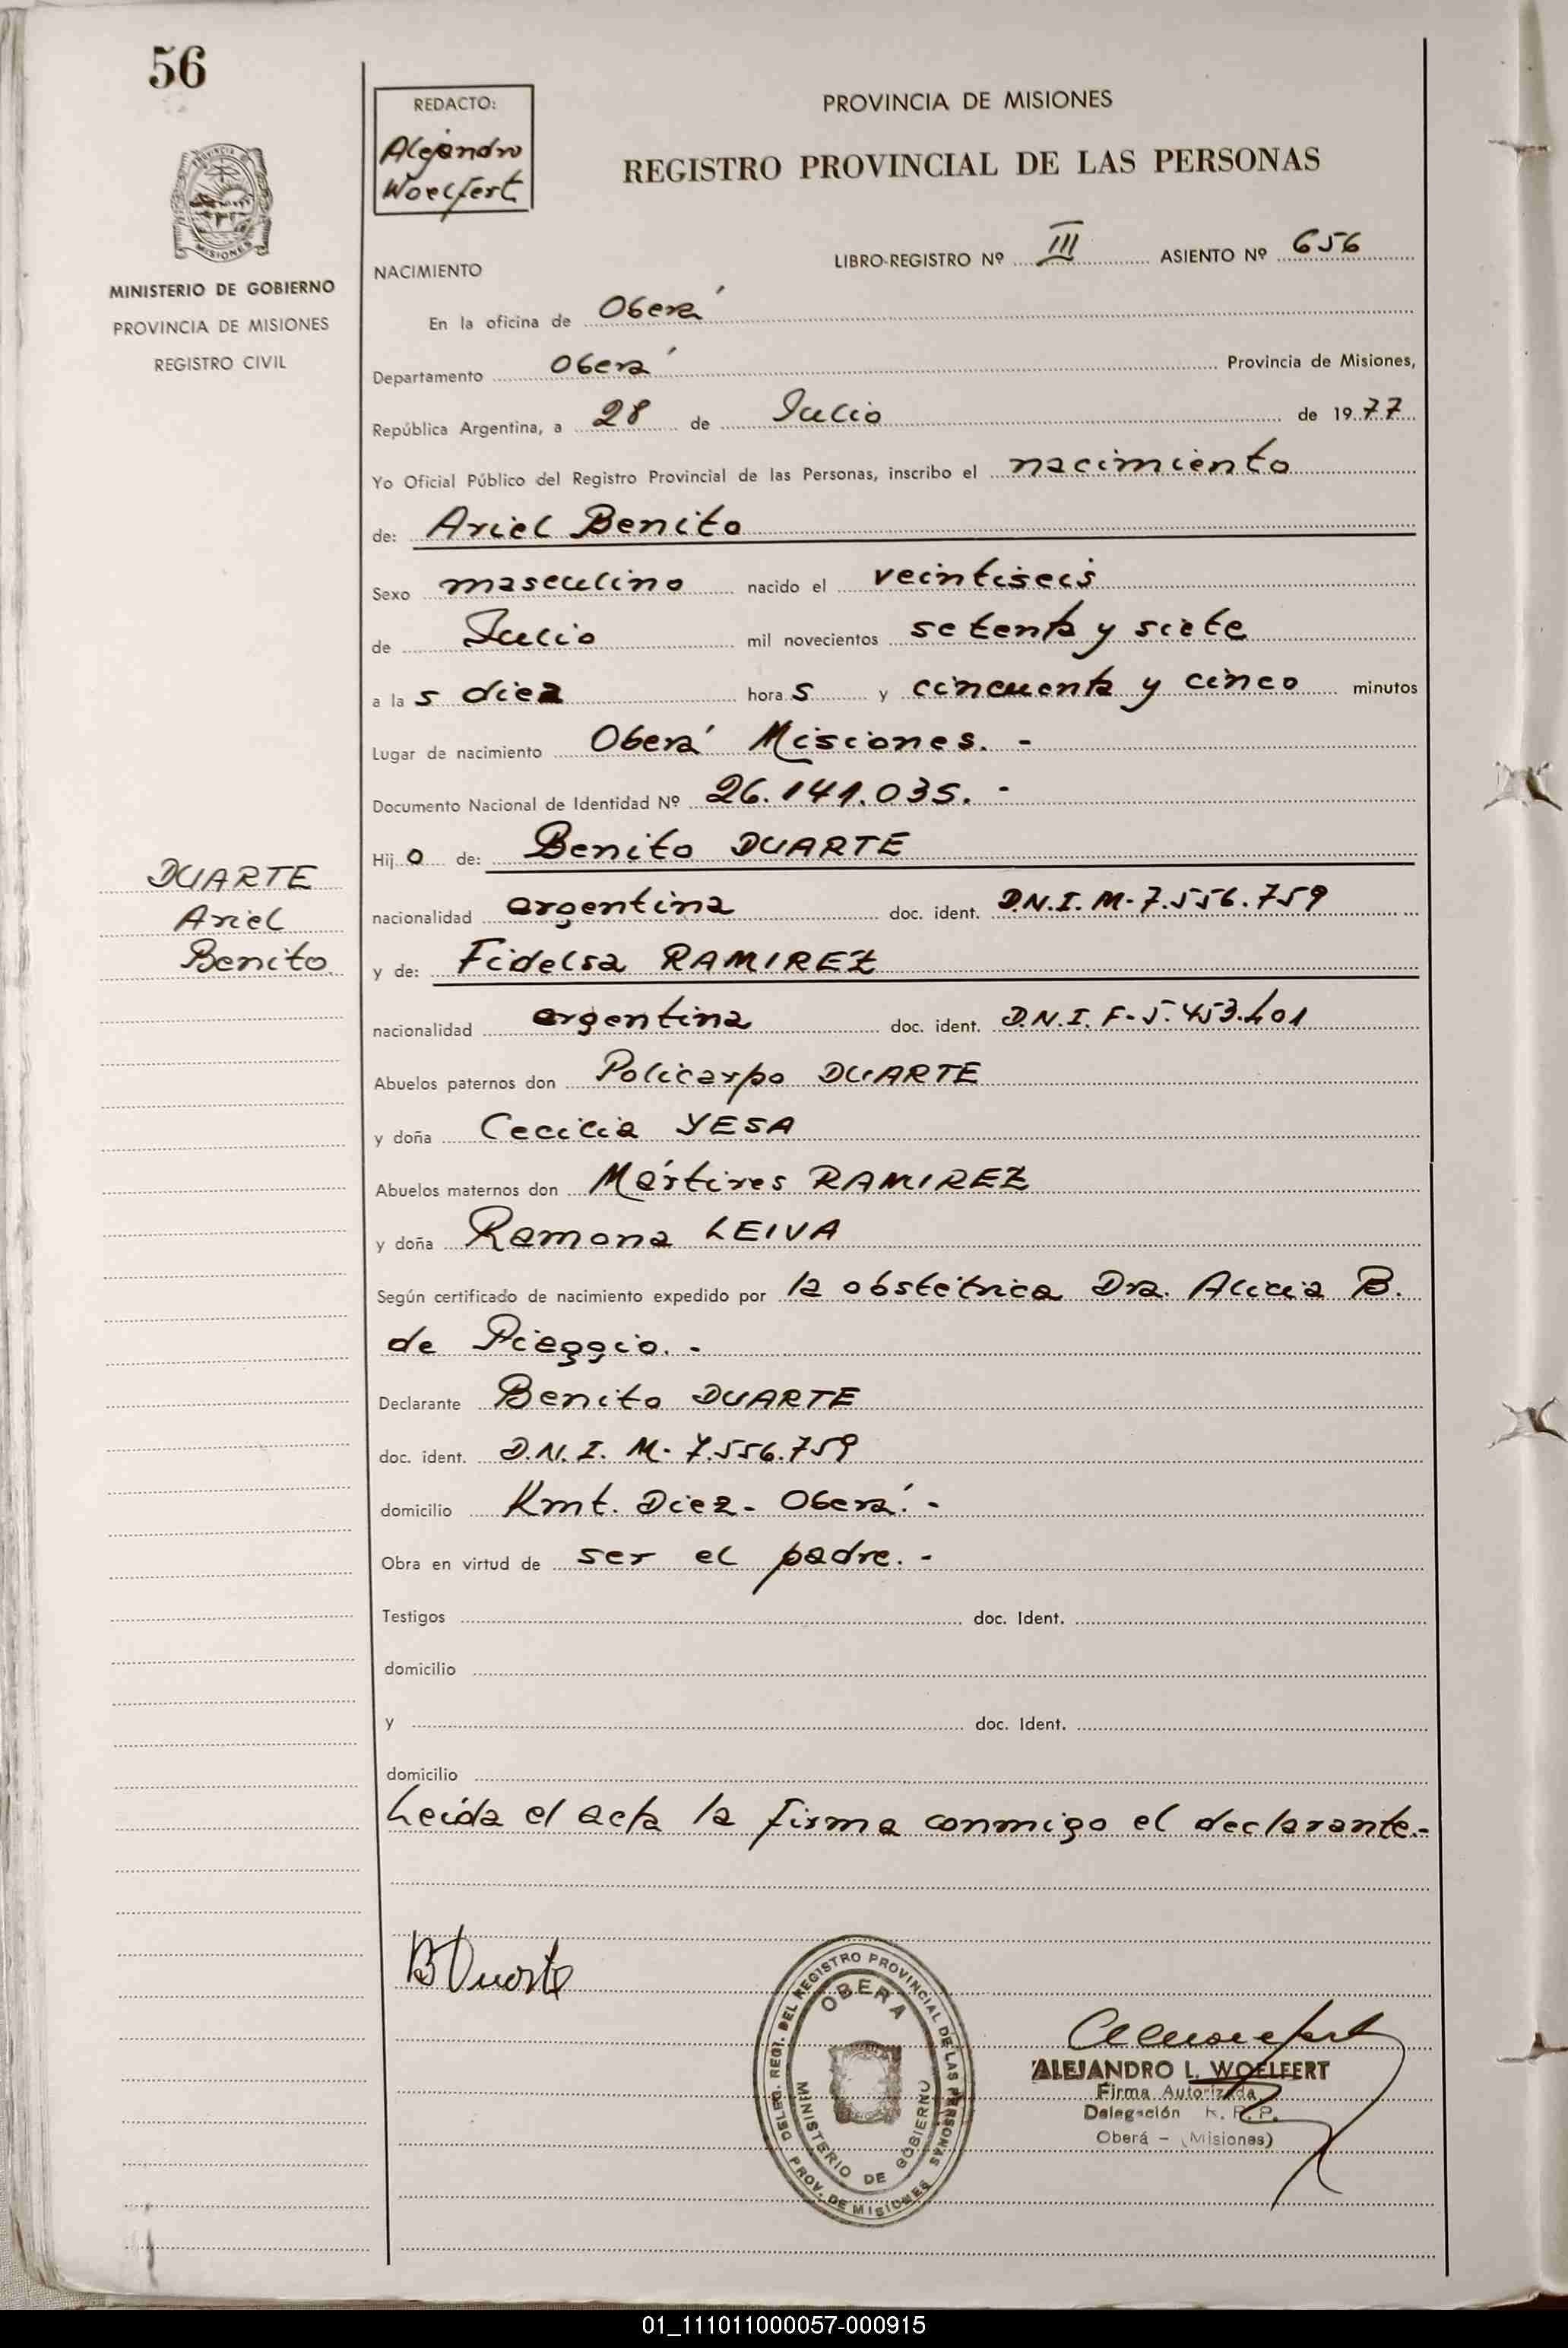 56
REDACTO:
Alejandro
Woelfert
PROVINCIA DE MISIONES
REGISTRO PROVINCIAL DE LAS PERSONAS
MISIONES
MINISTERIO DE GOBIERNO
PROVINCIA DE MISIONES
REGISTRO CIVIL
LIBRO-REGISTRO Nº III ASIENTO Nº 656
NACIMIENTO
En la oficina de Oberá
Departamento Oberá Provincia de Misiones,
República Argentina, a 28 de Julio de 1977
Yo Oficial Público del Registro Provincial de las Personas, inscribo el nacimiento
de: Ariel Benito
Sexo masculino nacido el veintiseis
de Julio mil novecientos setenta y siete
a las diez horas y cincuenta y cinco minutos
Lugar de nacimiento Oberá Misiones. -
Documento Nacional de Identidad Nº 26.141.035. -
Hijo de: Benito DUARTE
DUARTE
Ariel
Benito
nacionalidad argentina doc. ident. D.N.I. M- 7.556.759
y de: Fidelsa RAMIREZ
nacionalidad argentina doc. ident. D.N.I. F- 5.453.401
Abuelos paternos don Policarpo DUARTE
y doña Cecilia YESA
Abuelos maternos don Mártires RAMIREZ
y doña Ramona LEIVA
Según certificado de nacimiento expedido por la obstétrica Dra. Alicia B.
de Pieggio. -
Declarante Benito DUARTE
doc. ident. D.N.I. M- 7.556.759
domicilio Kmt. Diez- Oberá. -
Obra en virtud de ser el padre. -
Testigos doc. Ident.
domicilio
y doc. Ident.
domicilio
Leída el acta la firma conmigo el declarante.-
BDuarte
DELEG. REGI. DEL REGISTRO PROVINCIAL DE LAS PERSONAS
OBERA
MINISTERIO DE GOBIERNO
PROV. DE MISIONES
ALEJANDRO L. WOELFERT
Firma Autorizada
Delegación R. P. P.
Oberá - (Misiones)
01_111011000057-000915